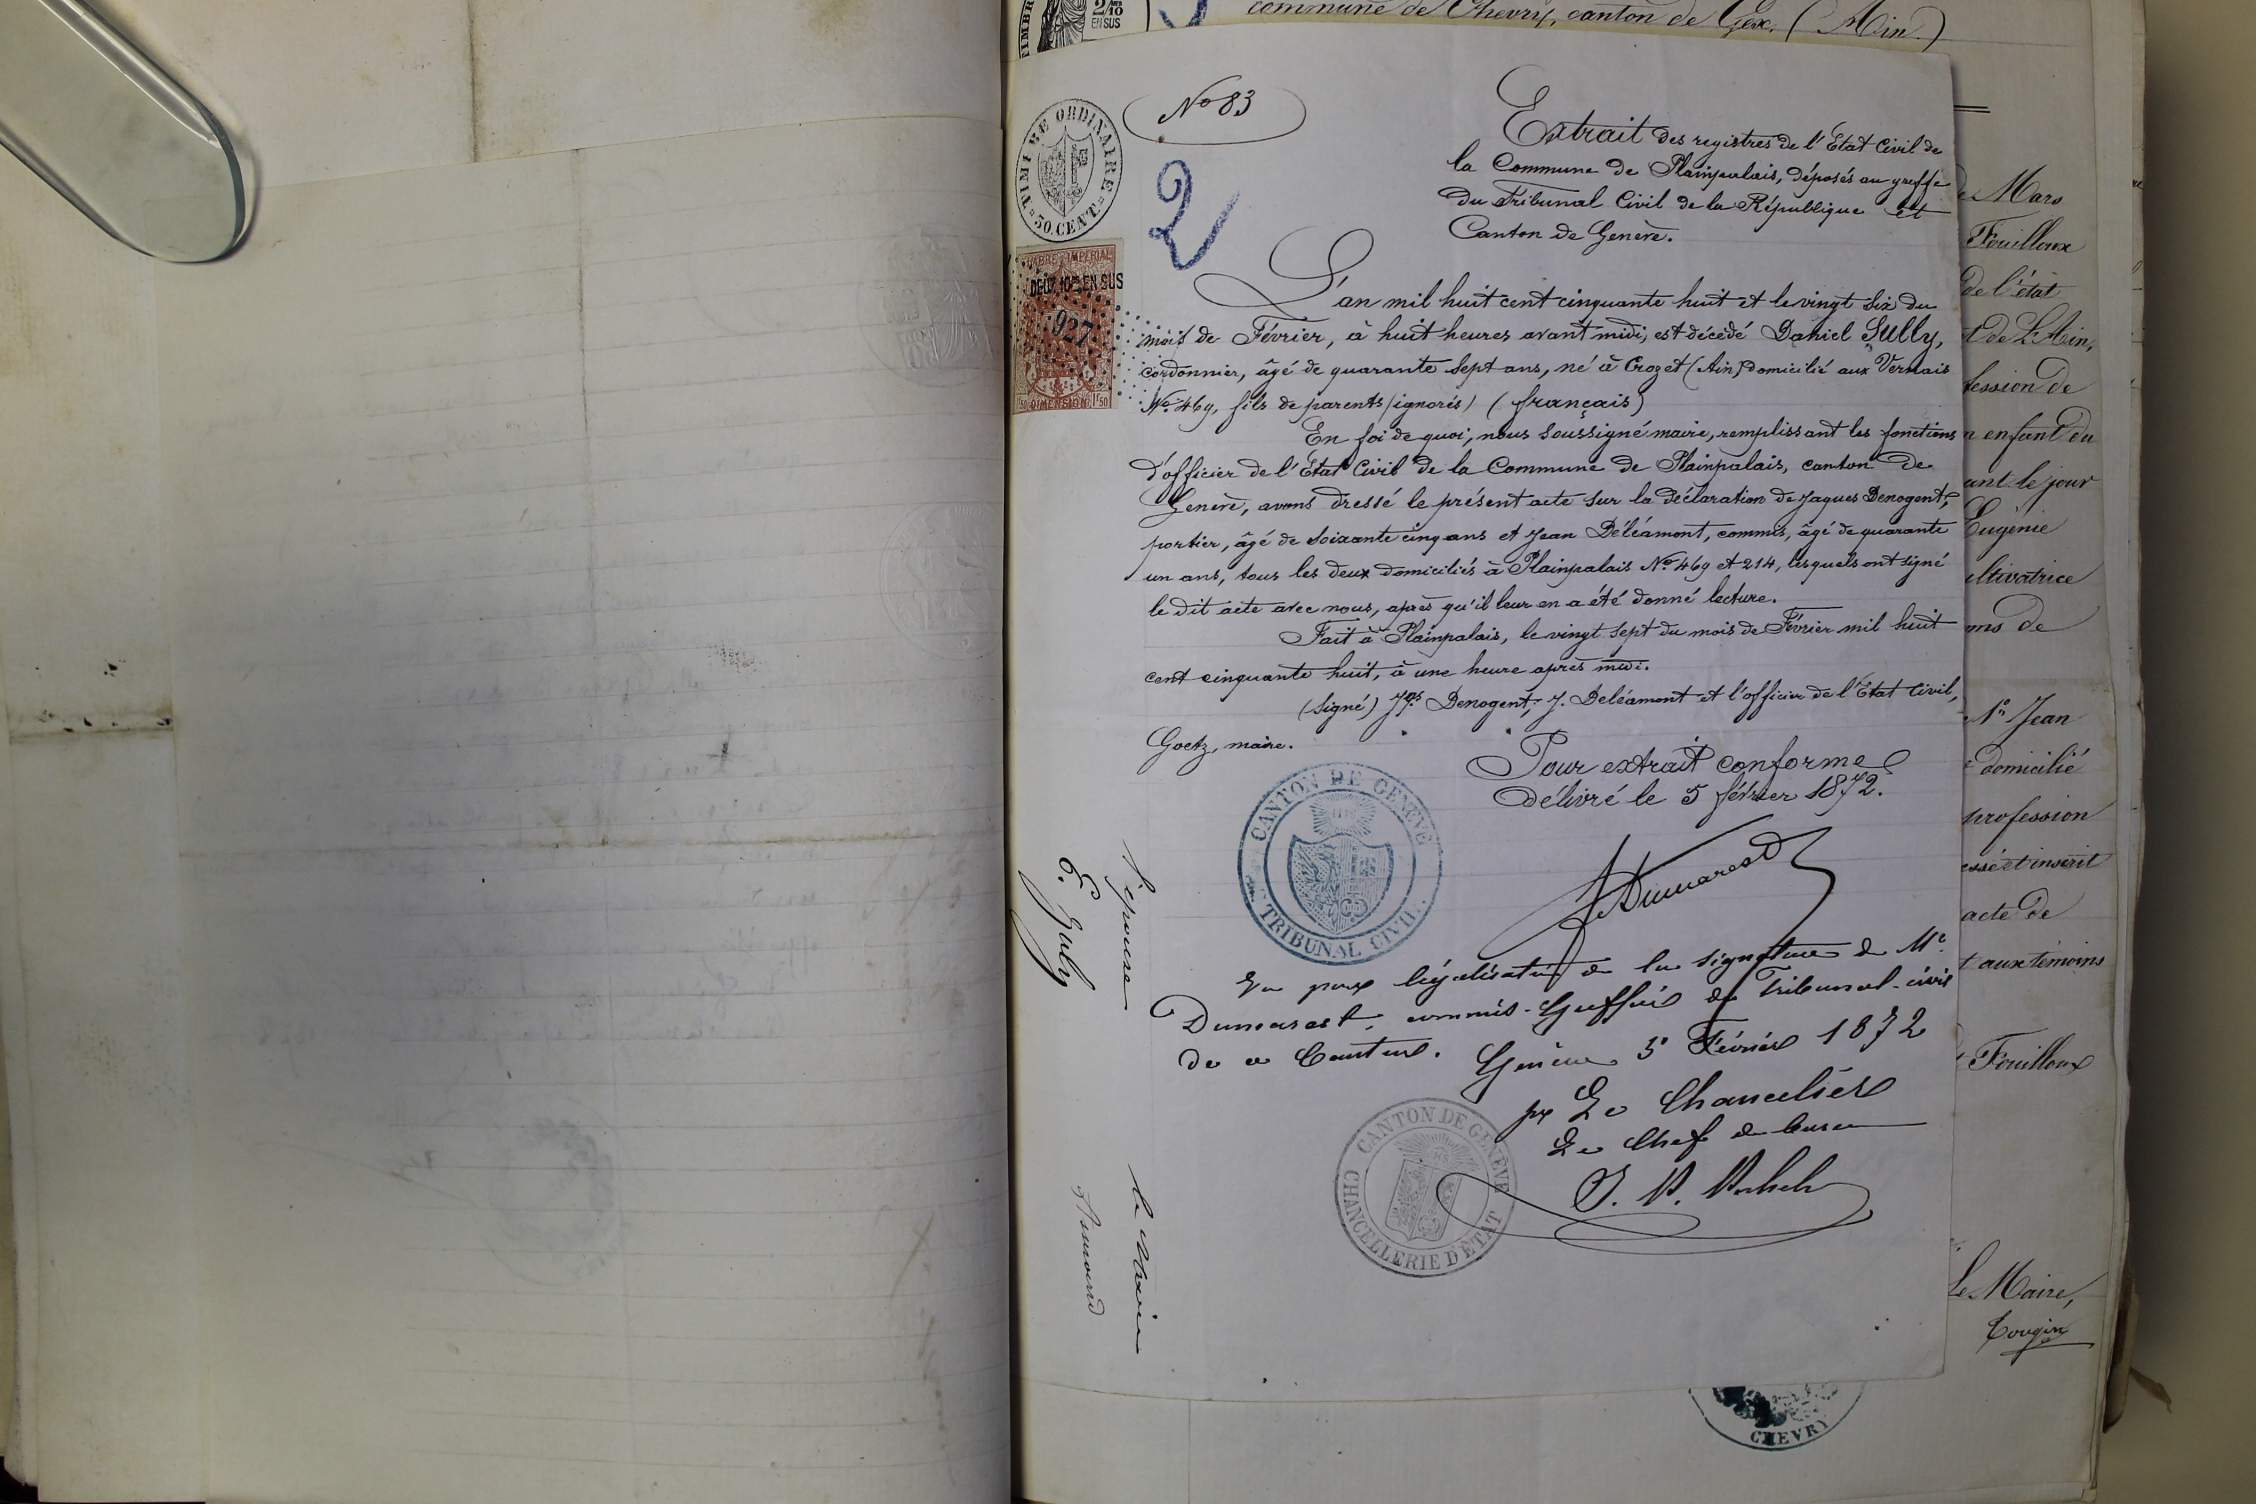 TIMBR
2/10
EN SUS
commune de Chevry, canton de Gex. (Ain.)
No 83
TIMBRE ORDINAIRE
50. CENT.
2
TIMBRE IMPÉRIAL
DEUX 10mes EN SUS
927
1f50 DIMENSION 1f50
Extrait des registres de l'État Civil de
la Commune de Plainpalais, déposés au greffe
du Tribunal Civil de la République et
Canton de Genève.
L'an mil huit cent cinquante huit et le vingt six du
mois de Février, à huit heures avant midi, est décédé Daniel Jully,
cordonnier, âgé de quarante sept ans, né à Crozet (Ain) domicilié aux Vernais
No 469, fils de parents (ignorés) (français)
En foi de quoi, nous soussigné maire, remplissant les fonctions
d'officier de l'État Civil de la Commune de Plainpalais, canton de
Genève, avons dressé le présent acte sur la déclaration de Jaques Denogent,
portier, âgé de soixante cinq ans et Jean Déléamont, commis, âgé de quarante
un ans, tous les deux domiciliés à Plainpalais No 469 et 214, lesquels ont signé
le dit acte avec nous, après qu'il leur en a été donné lecture.
Fait à Plainpalais, le vingt sept du mois de Février mil huit
cent cinquante huit, à une heure après midi.
(signé) Jqs Denogent, J. Deléamont et l'officier de l'État Civil,
Goetz, maire.
Pour extrait conforme
délivré le 5 février 1872.
CANTON DE GENÈVE
TRIBUNAL CIVIL
Dumarest
Vu pour légalisation de la signature de Mr
Dumarest, commis-Greffier du Tribunal-civil
de ce Canton. Genève 5 Février 1872
pr Le Chancelier
Le Chef de bureau
CANTON DE GENÈVE
CHANCELLERIE D'ÉTAT
L'épouse
E. July
Le Maire
de Mars
Fouilloux
de l'état
t de L'Ain,
fession de
n enfant du
ant le jour
Eugénie
ultivatrice
ms de
Jean
domicilié
profession
essé et inscrit
acte de
t aux témoins
Fouilloux
Le Maire,
Cougin
CHEVRY